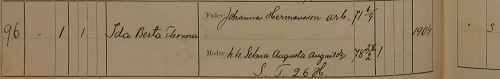 Fader: Johannes Hermansson arb. 71 6/9
96 1 1 Ida Berta Eleonora 1904 3
Moder: h h Selma Augusta 78 28/2 1
S. T. 26 H.